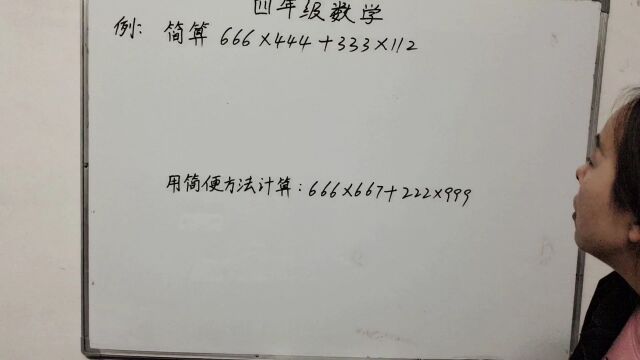 四年级数学
例: 简算 666×444+333×112
用简便方法计算:666×667+222×999